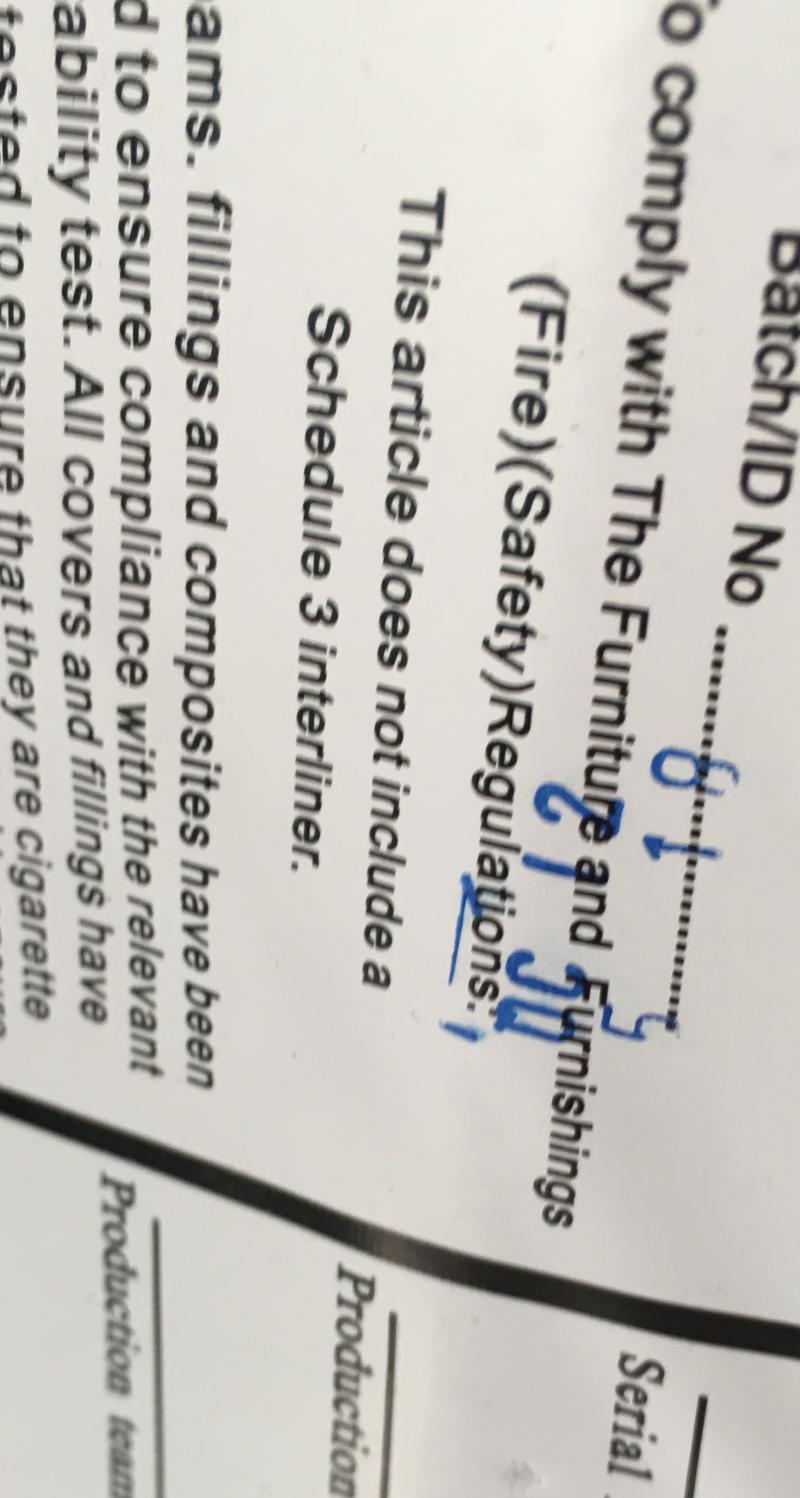 Batch/ID No ..............................
To comply with The Furniture and Furnishings
(Fire)(Safety)Regulations:
This article does not include a
Schedule 3 interliner.
ams. fillings and composites have been
d to ensure compliance with the relevant
ability test. All covers and fillings have
tested to ensure that they are cigarette
Serial
Production
Production team